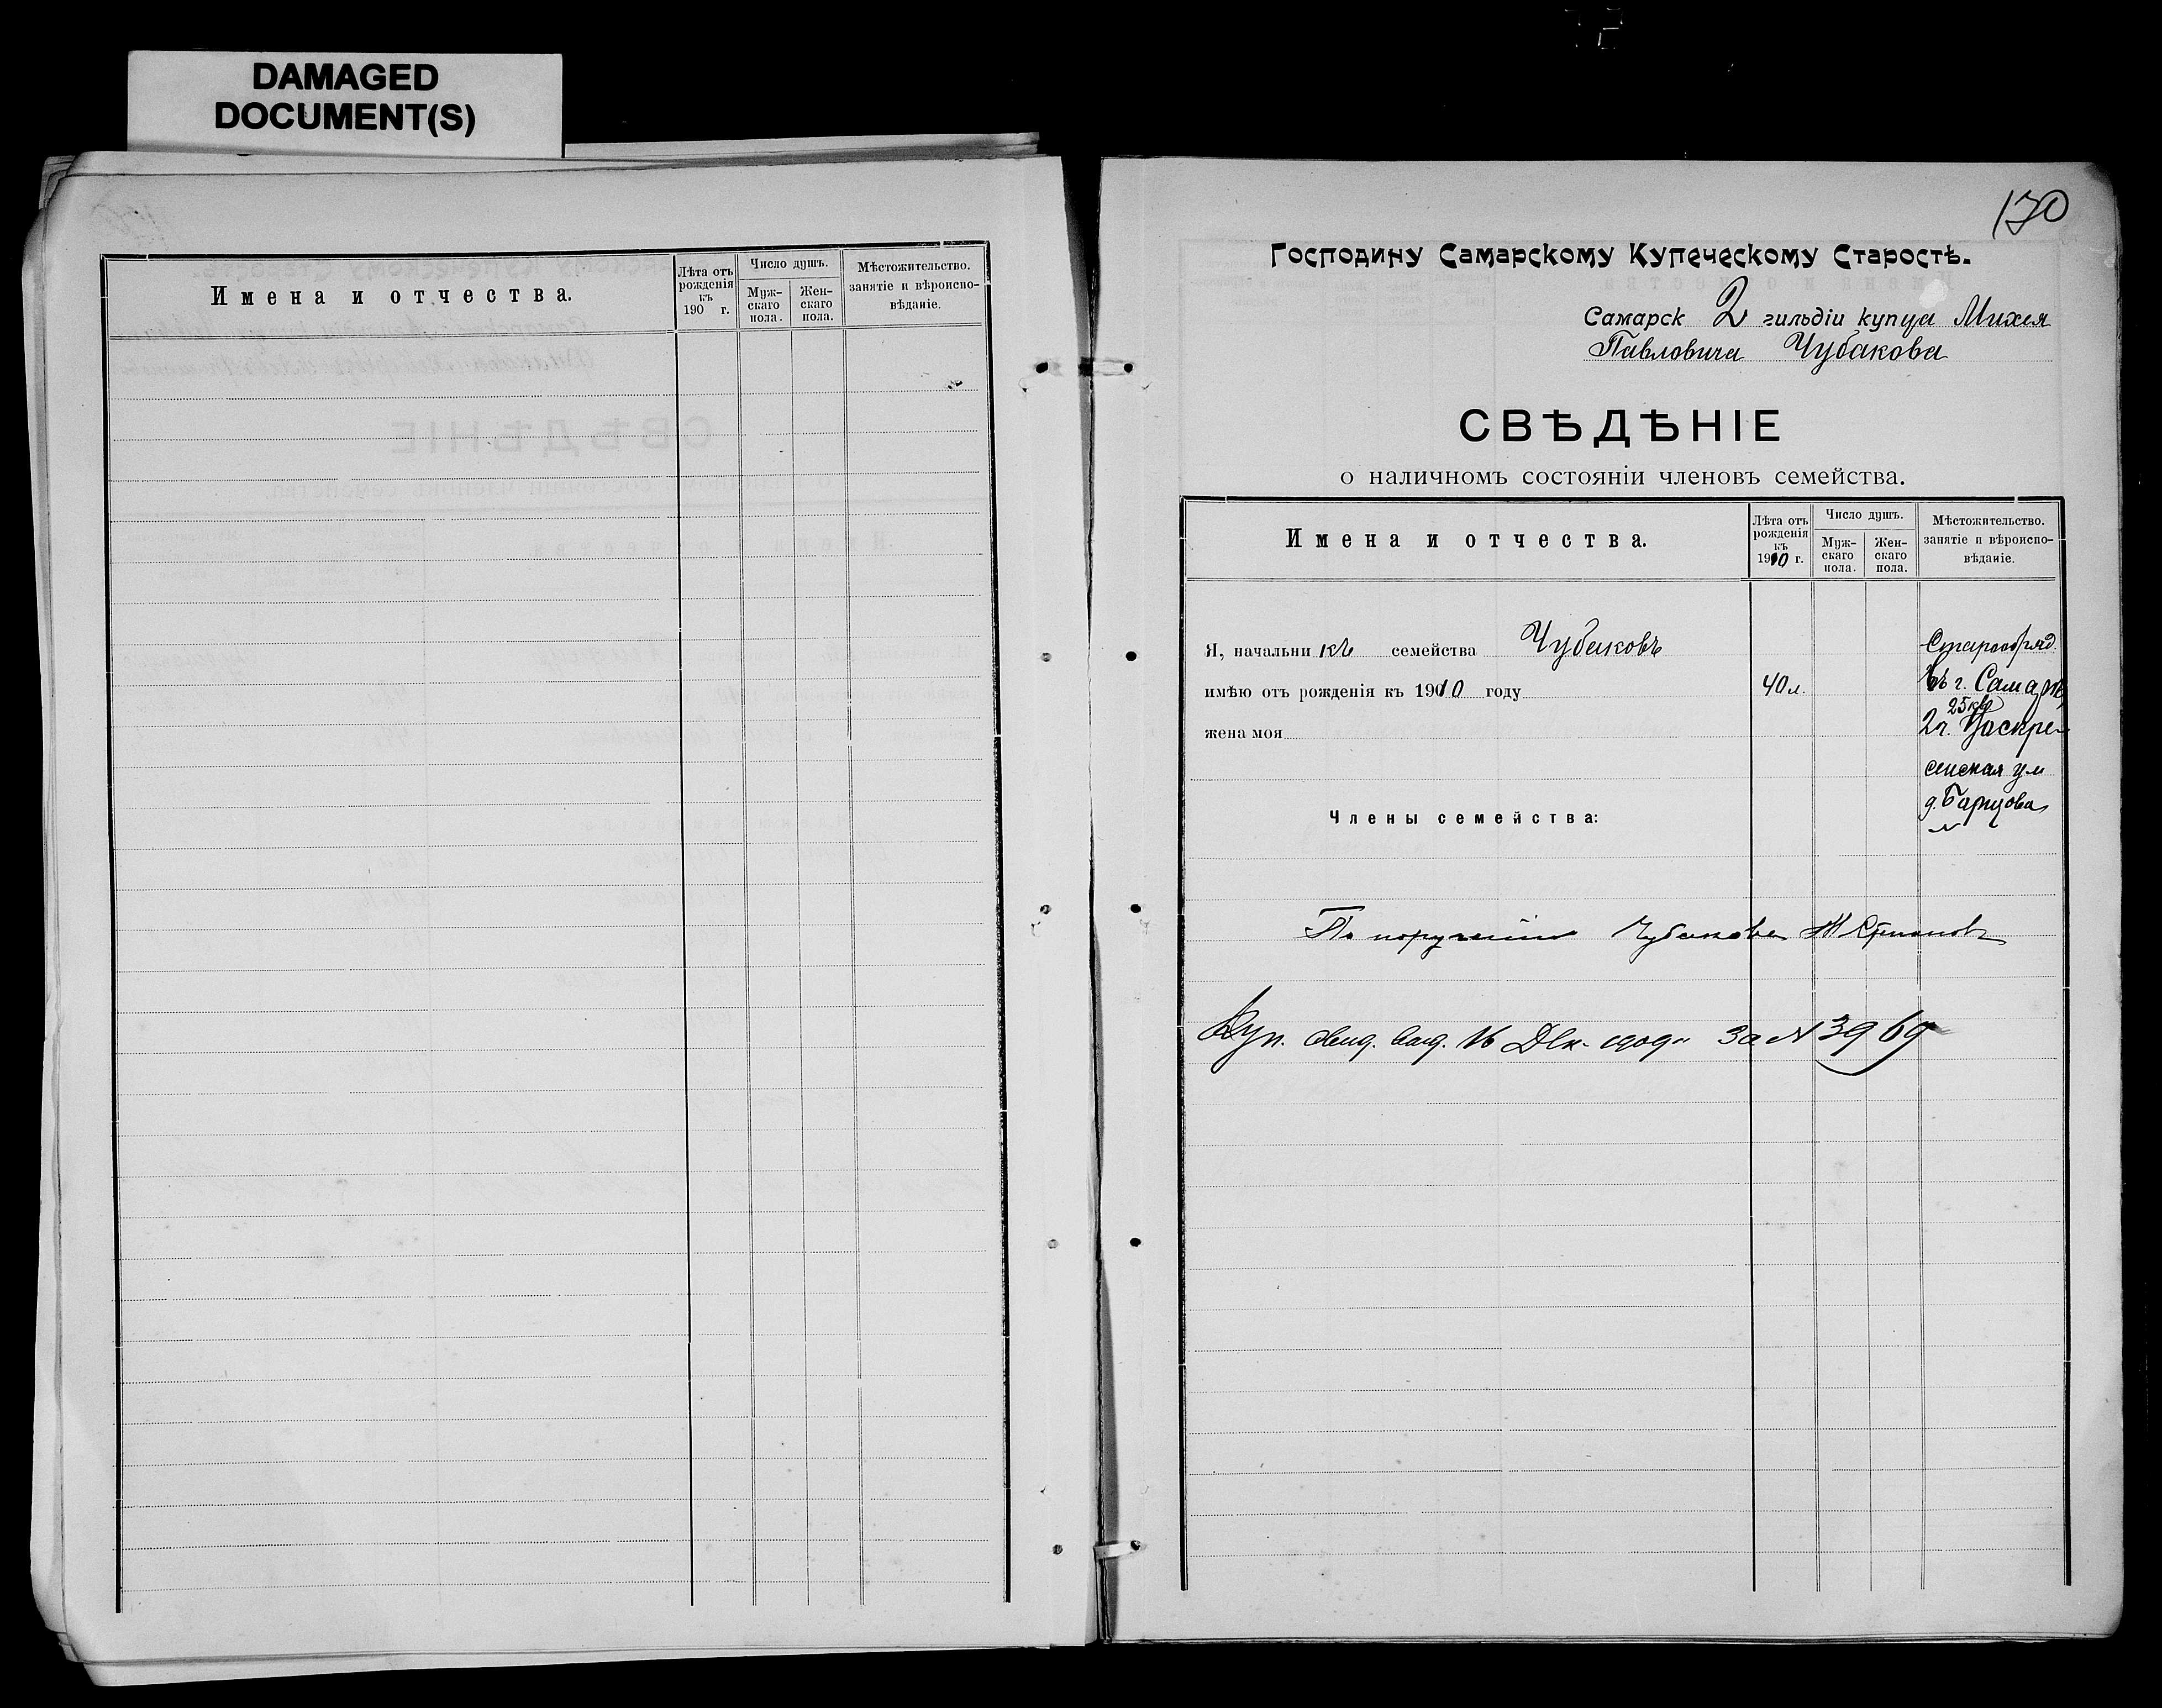 DAMAGED
DOCUMENT(S)
Имена и отчества.
Лѣта отъ рожденія къ 190 г.
Число душъ.
Муж-скаго пола.
Жен-скаго пола.
Мѣстожительство. занятіе и вѣроиспо-вѣданіе.
130
Господину Самарскому Купеческому Старостѣ.
Самарск 2 гильдіи купца Михея
Павловича Чубакова
СВѢДѢНІЕ
о наличномъ состояніи членовъ семейства.
Имена и отчества.
Лѣта отъ рожденія къ 1910 г.
Число душъ.
Муж-скаго пола.
Жен-скаго пола.
Мѣстожительство. занятіе и вѣроиспо-вѣданіе.
Я, начальникъ семейства Чубаковъ
Старообряд.
имѣю отъ рожденія къ 1910 году 40 л.
въ г. Самарѣ,
25 кв
жена моя
2 ч. Воскре-
сенская ул
д. Барцова
Члены семейства:
По порученію Чубакова
Куп. свид. выд. 16 Дек. за № 3969